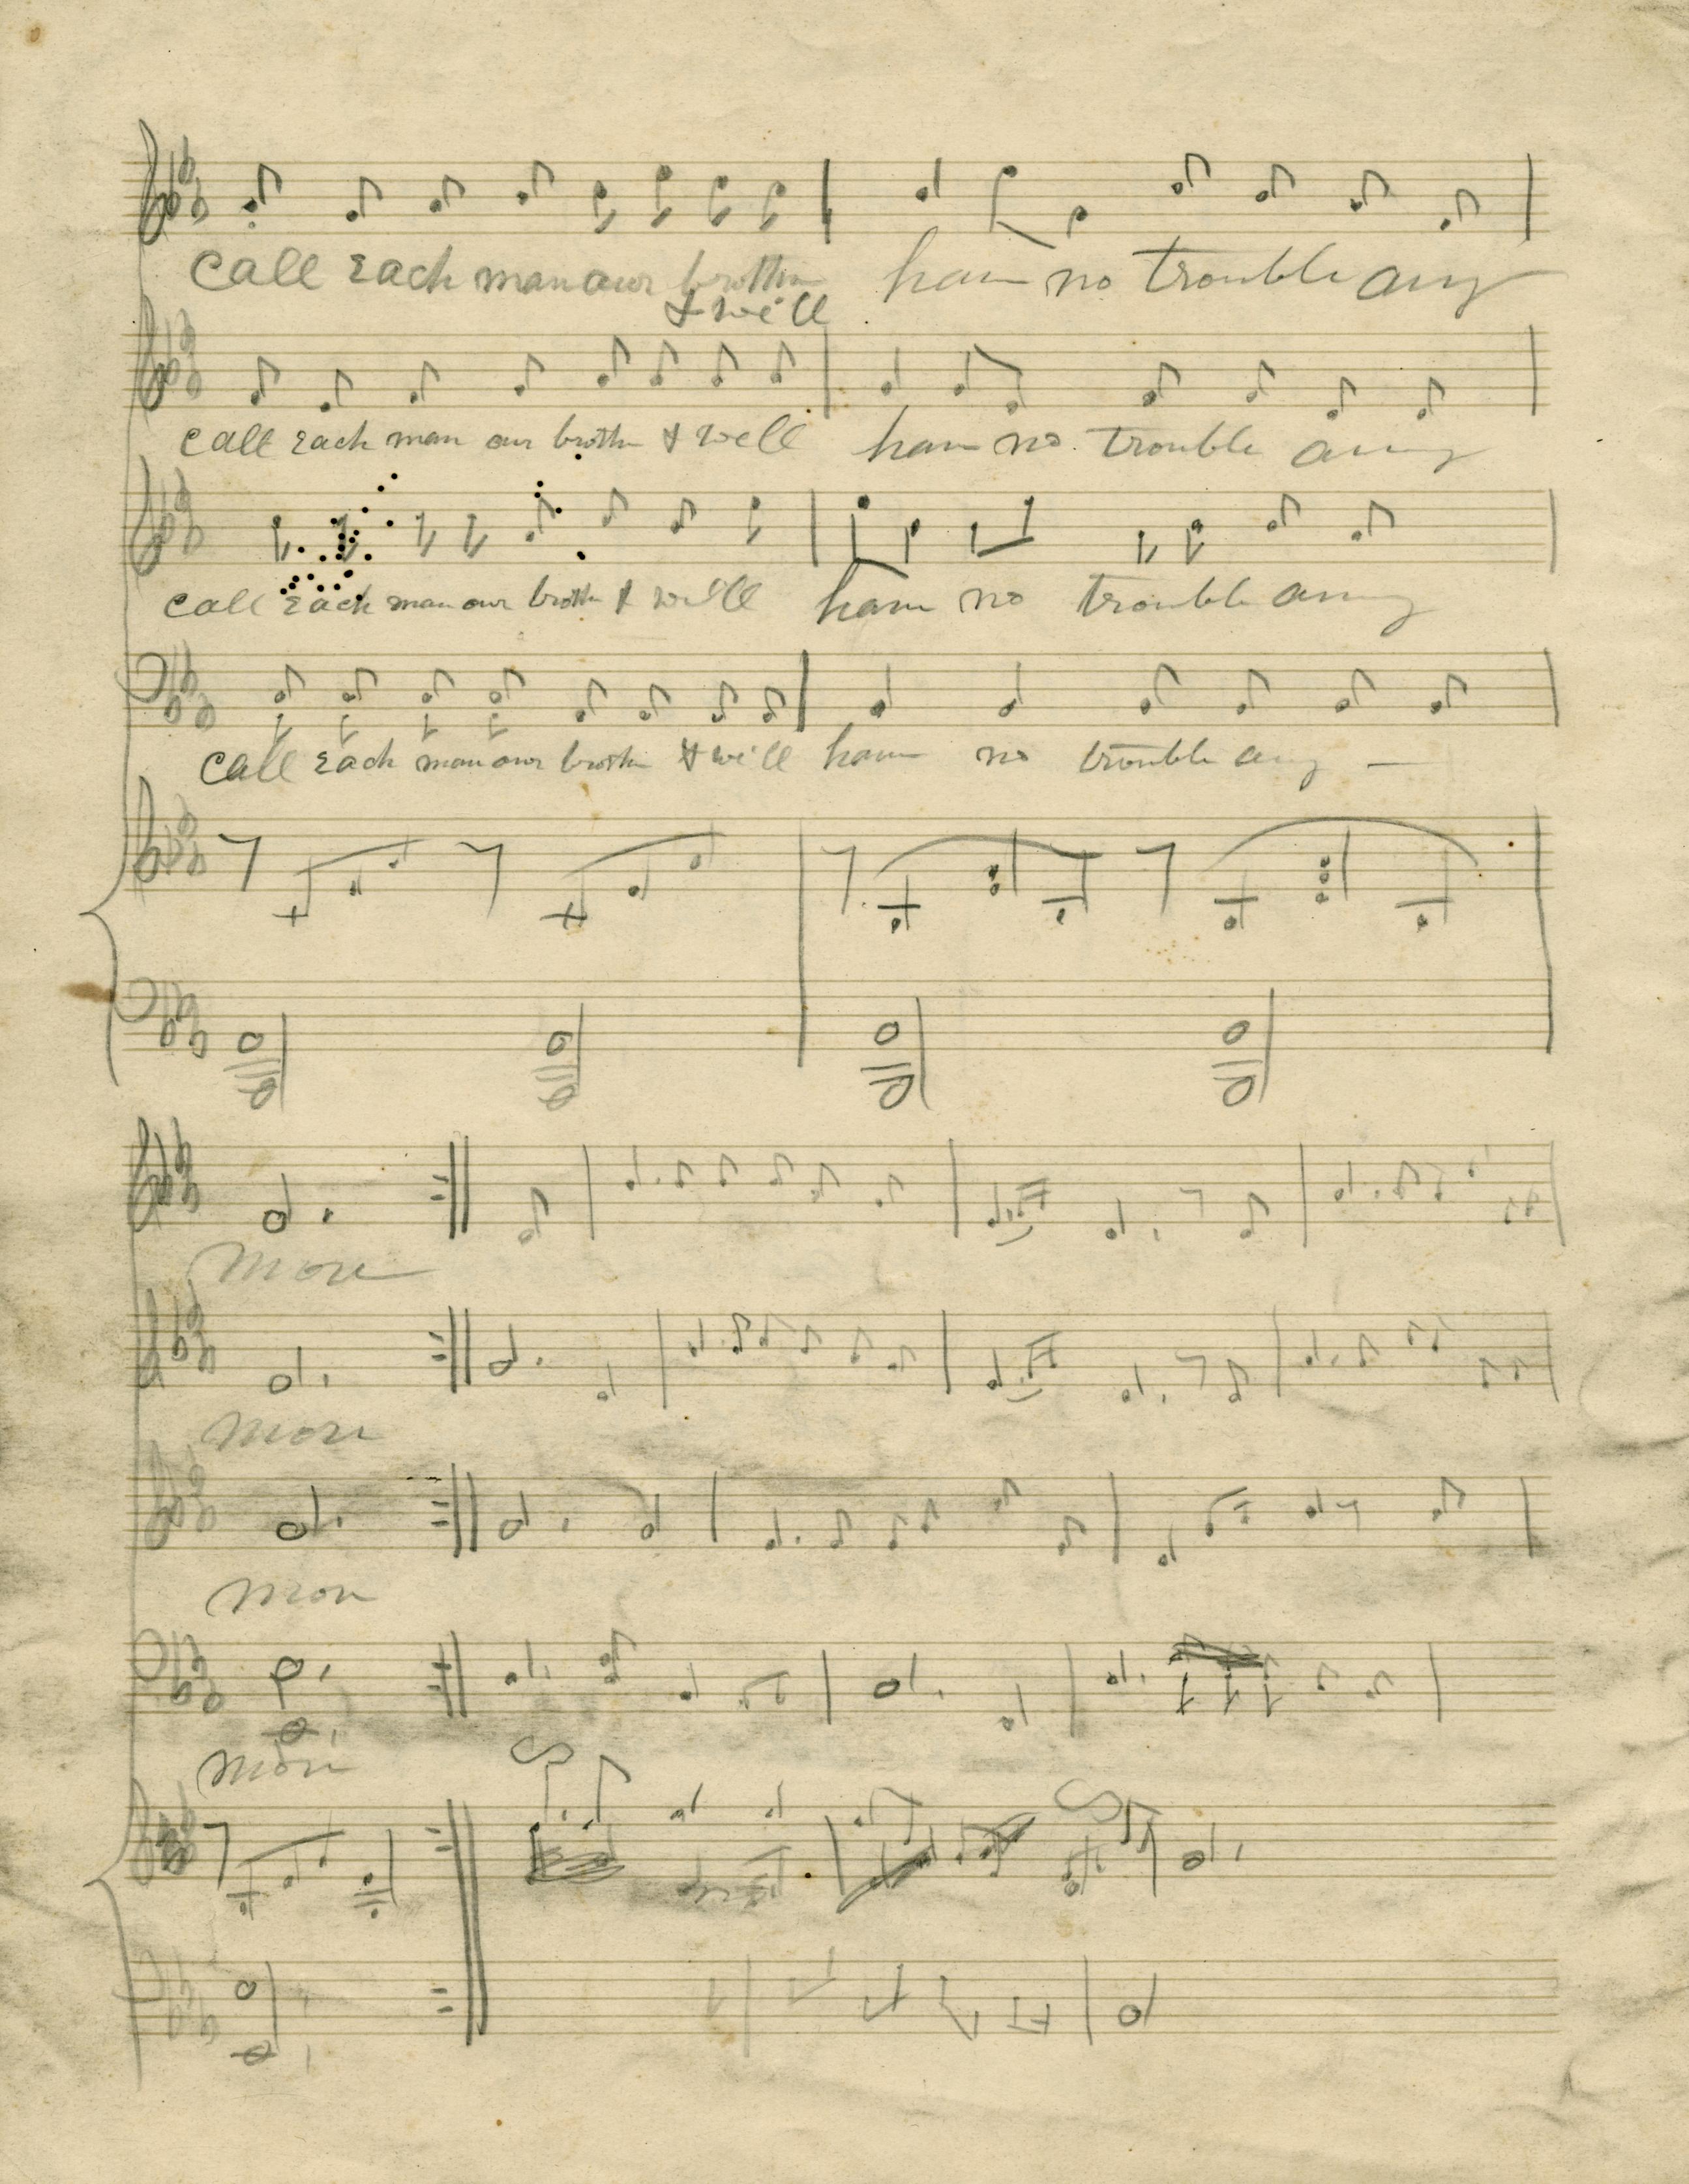 call each man our brother
& we'll
have no trouble any
call each man our brother & we'll have no trouble any
call each man our brother & we'll have no trouble any
call each man our brother & we'll have no trouble any —
more
more
more
more